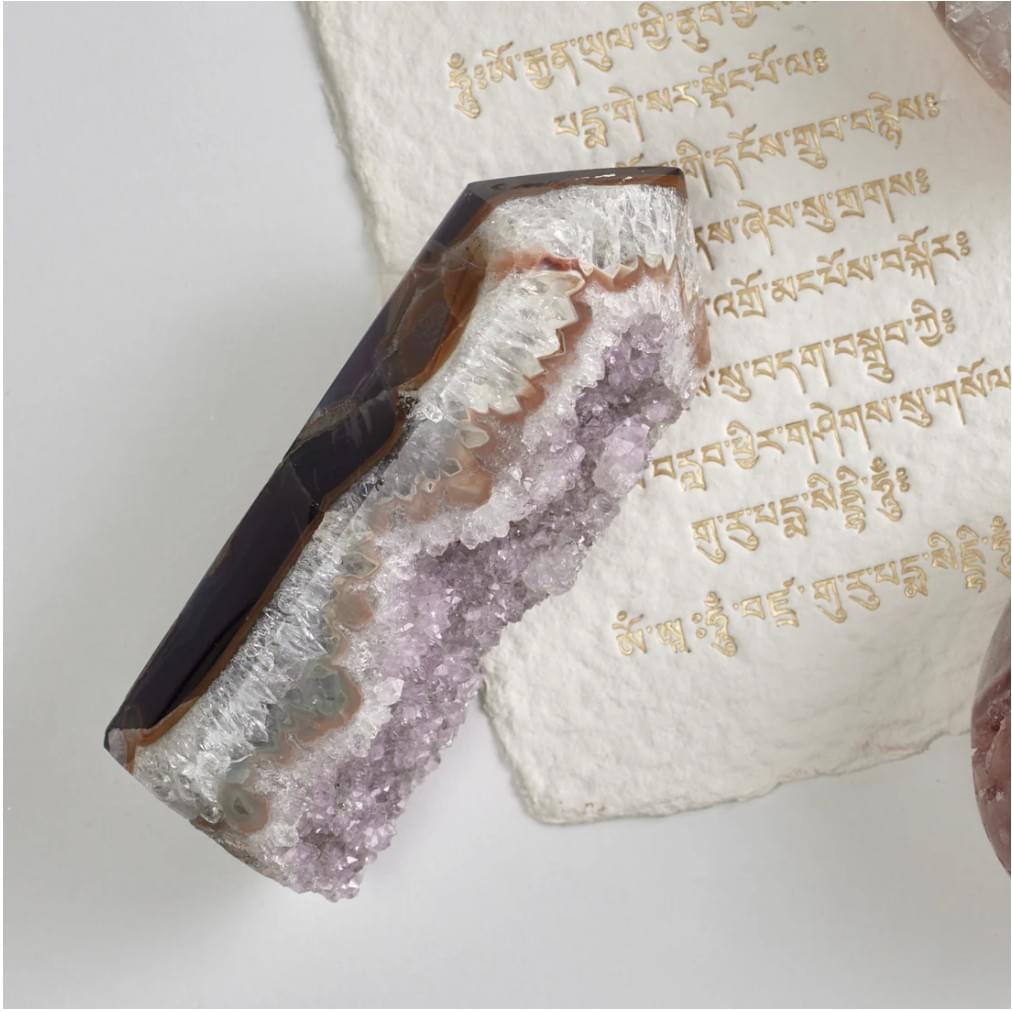 ཧཱུྃ༔ ཨོ་རྒྱན་ཡུལ་གྱི་ནུབ་
པདྨ་གེ་སར་སྡོང་པོ་ལ༔
གི་དངོས་གྲུབ་བརྙེས༔
ཞེས་སུ་གྲགས༔
འགྲོ་མང་པོས་བསྐོར༔
སུ་བདག་བསྒྲུབ་ཀྱི༔
བརླབ་ཕྱིར་གཤེགས་སུ་གསོལ
གུ་རུ་པདྨ་སིདྡྷི་ཧཱུྃ༔
ཨོཾ་ཨཱཿ་ཧཱུྃ་བཛྲ་གུ་རུ་པདྨ་སིདྡྷི་ཧཱུྃ